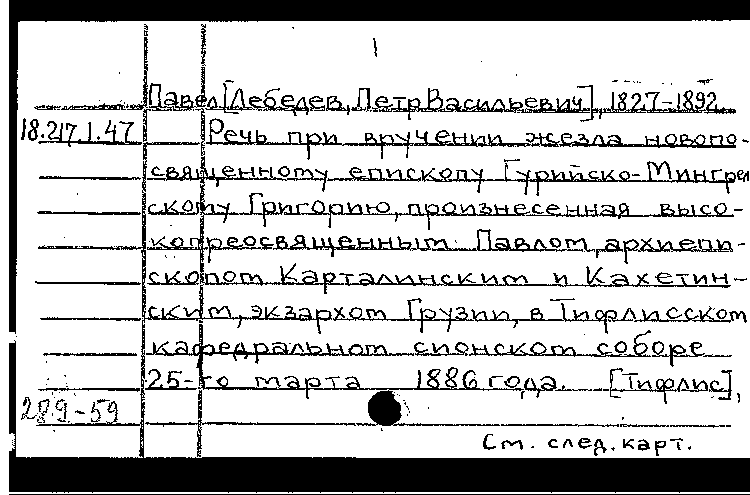 Павел [Лебедев, Петр Васильевич], 1827-1892
18.217.1.47 Речь при вручении жезла новопо-
священному епископу Гурийско-Мингрел
скому Григорию, произнесенная высо-
копреосвященным Павлом, архиепи-
скопом Карталинским и Кахетин-
ским, экзархом Грузии, в Тифлисском
кафедральном сионском соборе
25-го марта 1886 года. [Тифлис],
289-59
См. след. карт.